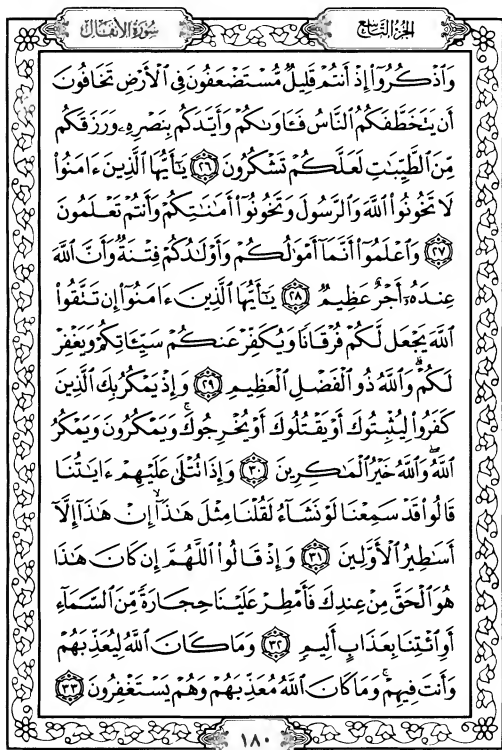 سُورَةُ الأَنفَال
الجُزْءُ التَّاسِع
وَاذْكُرُوا إِذْ أَنتُمْ قَلِيلٌ مُّسْتَضْعَفُونَ فِي الْأَرْضِ تَخَافُونَ
أَن يَتَخَطَّفَكُمُ النَّاسُ فَـَٔاوَىٰكُمْ وَأَيَّدَكُم بِنَصْرِهِۦ وَرَزَقَكُم
مِّنَ الطَّيِّبَـٰتِ لَعَلَّكُمْ تَشْكُرُونَ ٢٦ يَـٰٓأَيُّهَا الَّذِينَ ءَامَنُوا
لَا تَخُونُوا اللَّهَ وَالرَّسُولَ وَتَخُونُوٓا أَمَـٰنَـٰتِكُمْ وَأَنتُمْ تَعْلَمُونَ
٢٧ وَاعْلَمُوٓا أَنَّمَآ أَمْوَٰلُكُمْ وَأَوْلَـٰدُكُمْ فِتْنَةٌ وَأَنَّ اللَّهَ
عِندَهُۥٓ أَجْرٌ عَظِيمٌ ٢٨ يَـٰٓأَيُّهَا الَّذِينَ ءَامَنُوٓا إِن تَتَّقُوا
اللَّهَ يَجْعَل لَّكُمْ فُرْقَانًا وَيُكَفِّرْ عَنكُمْ سَيِّـَٔاتِكُمْ وَيَغْفِرْ
لَكُمْ ۗ وَاللَّهُ ذُو الْفَضْلِ الْعَظِيمِ ٢٩ وَإِذْ يَمْكُرُ بِكَ الَّذِينَ
كَفَرُوا لِيُثْبِتُوكَ أَوْ يَقْتُلُوكَ أَوْ يُخْرِجُوكَ ۚ وَيَمْكُرُونَ وَيَمْكُرُ
اللَّهُ ۖ وَاللَّهُ خَيْرُ الْمَـٰكِرِينَ ٣٠ وَإِذَا تُتْلَىٰ عَلَيْهِمْ ءَايَـٰتُنَا
قَالُوا قَدْ سَمِعْنَا لَوْ نَشَآءُ لَقُلْنَا مِثْلَ هَـٰذَآ ۙ إِنْ هَـٰذَآ إِلَّآ
أَسَـٰطِيرُ الْأَوَّلِينَ ٣١ وَإِذْ قَالُوا اللَّهُمَّ إِن كَانَ هَـٰذَا
هُوَ الْحَقَّ مِنْ عِندِكَ فَأَمْطِرْ عَلَيْنَا حِجَارَةً مِّنَ السَّمَآءِ
أَوِ ائْتِنَا بِعَذَابٍ أَلِيمٍ ٣٢ وَمَا كَانَ اللَّهُ لِيُعَذِّبَهُمْ
وَأَنتَ فِيهِمْ ۚ وَمَا كَانَ اللَّهُ مُعَذِّبَهُمْ وَهُمْ يَسْتَغْفِرُونَ ٣٣
١٨٠